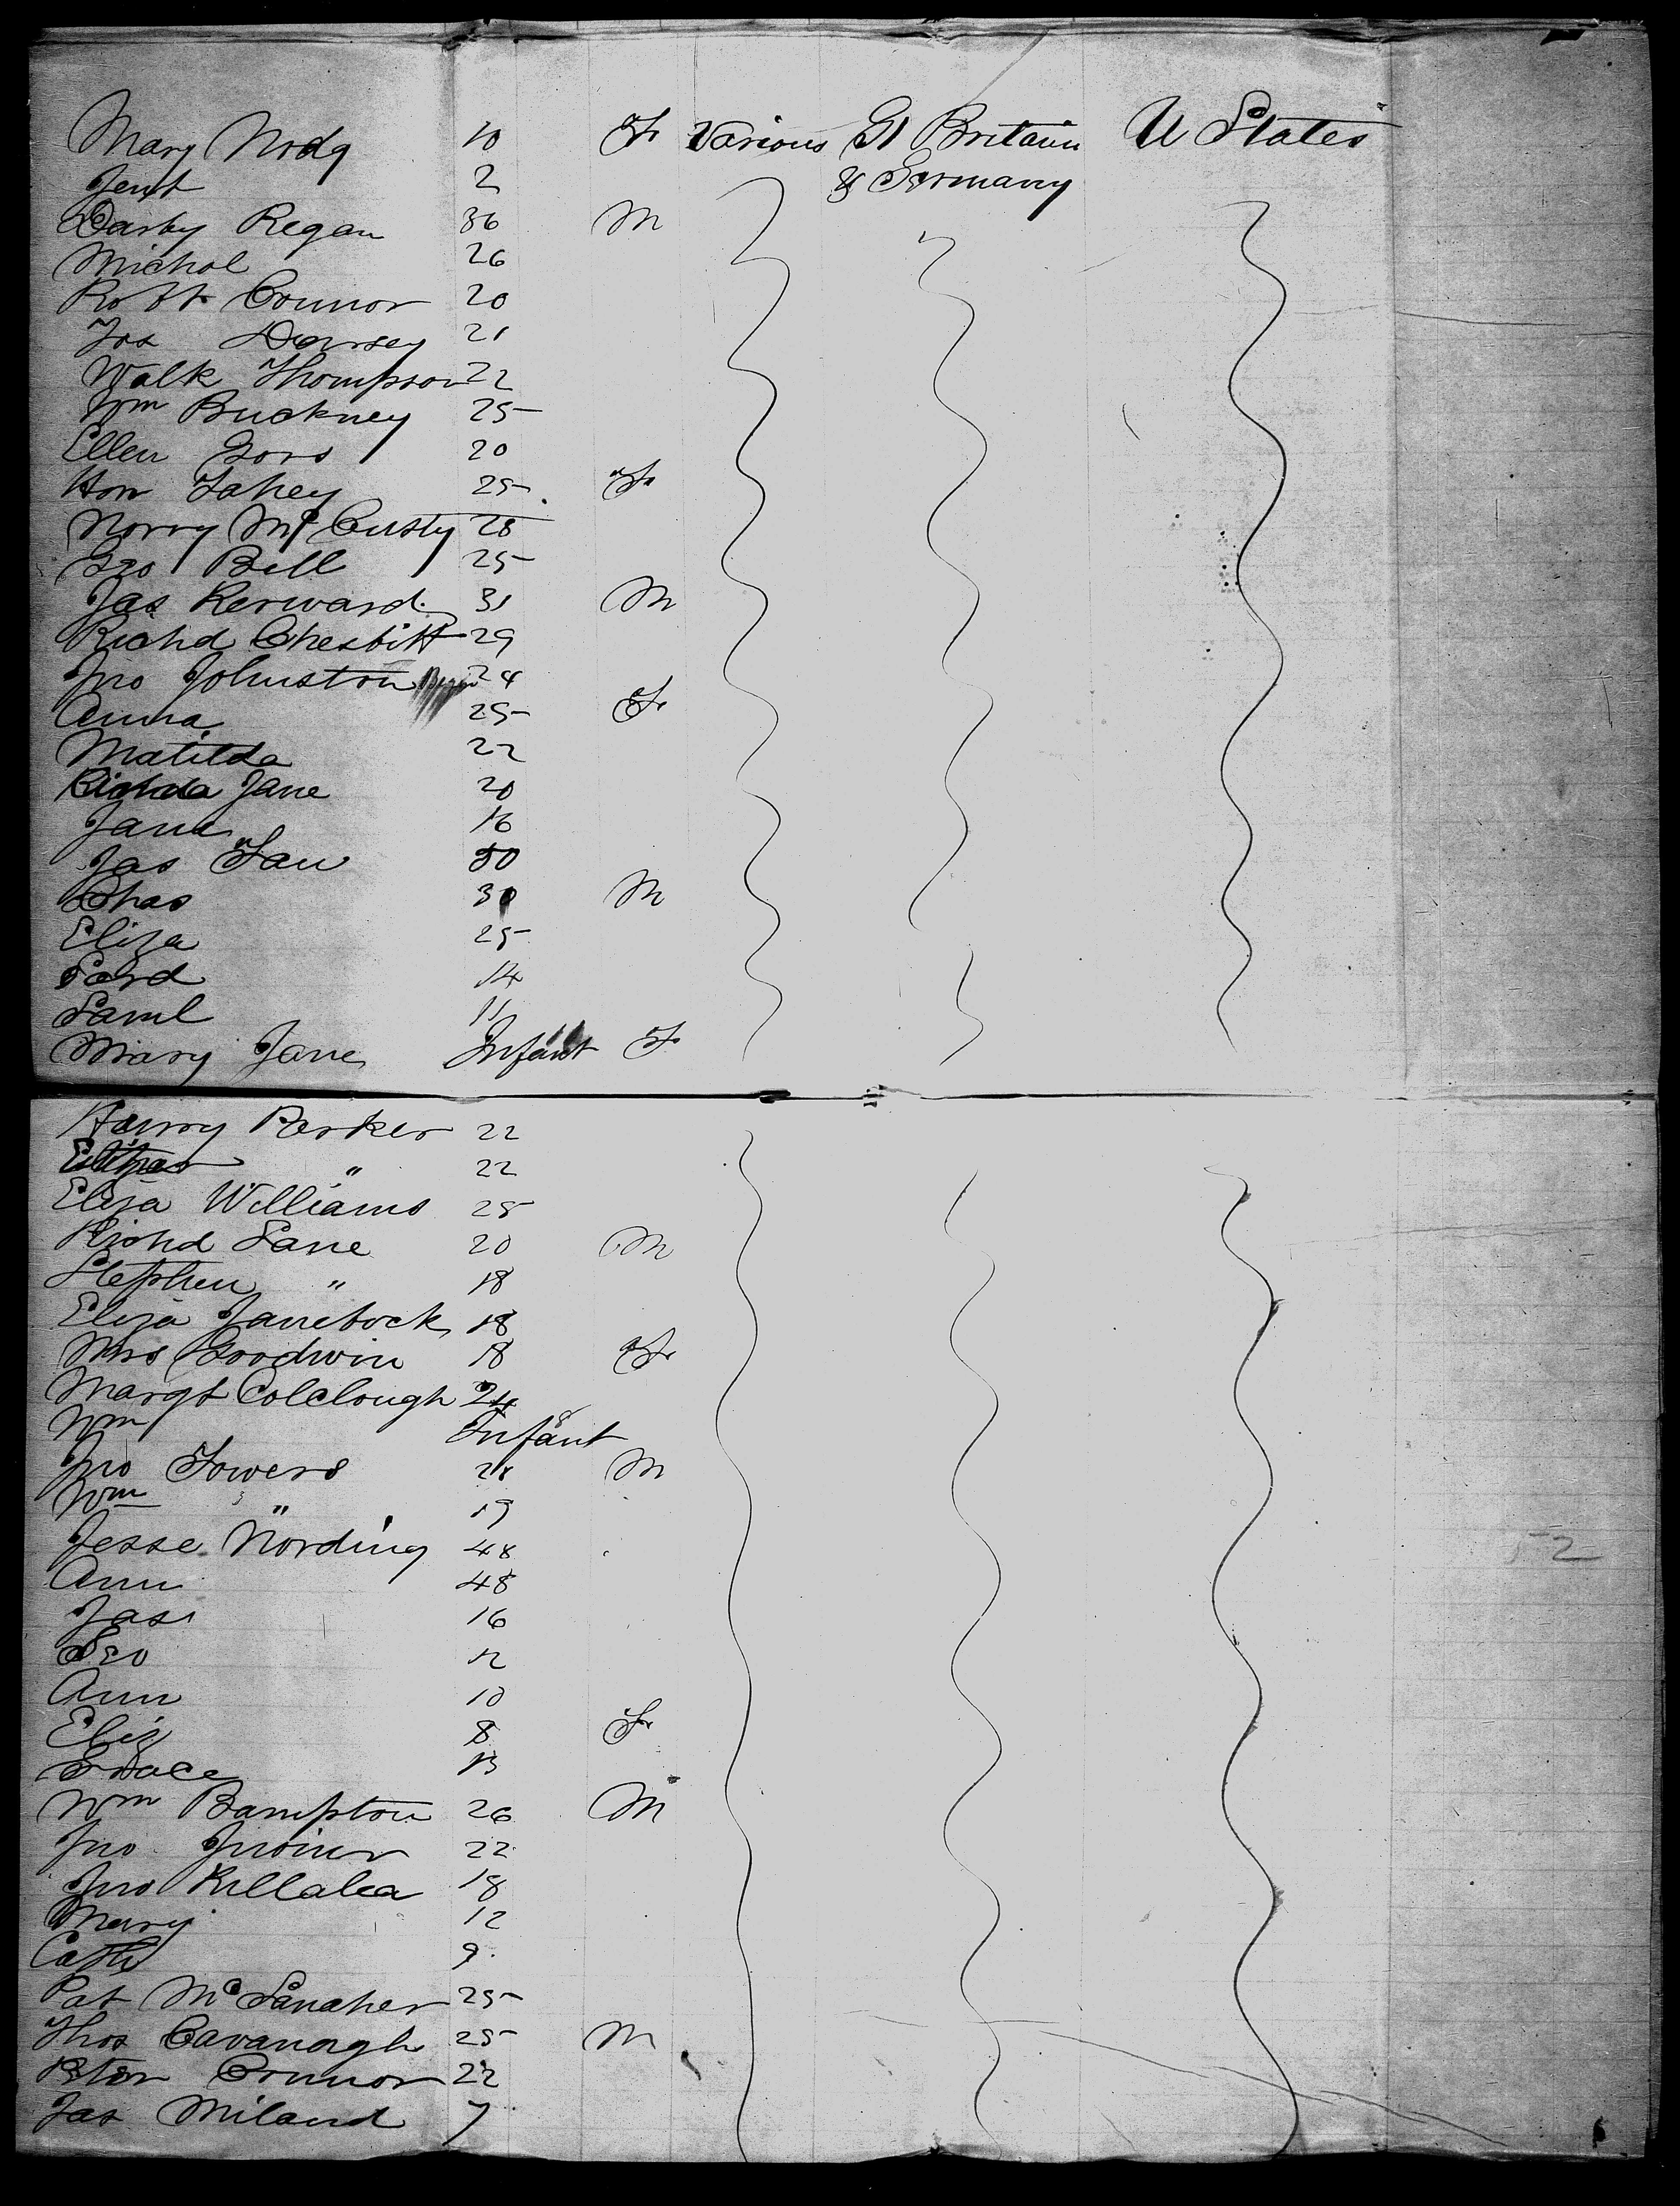 Mary Nody 10 F Various Gt Britain U States
Jent 2 & Germany
Darby Regan 36 M
Michal 26
Robt Connor 20
Jos Dorsey 21
Walk Thompson 22
Wm Buckney 25
Ellen Gors 20
Hon Fahey 25 F
Norry McCusty 28
Geo Bell 25
Jas Kerward 31 M
Richd Chesbitt 29
Jno Johnston 24
Anna 25 F
Matilda 22
Jane 20
Jane 16
Jas Fau 50
Chas 30 M
Eliza 25
14
Saml 11
Mary Jane Infant F
Harry Parker 22
" 22
Eliza Williams 25
Richd Lane 20 M
Stephen " 18
Eliza Janebock 18
Mrs Goodwin 18 F
Margt Colclough 24
Wm Infant
Jno Towers 28 M
Wm " 19
Jesse Nording 48
Ann 48
Jas 16
Geo 12
Ann 10
Eliz 8 F
Grace 13
Wm Bampton 26 M
Jno 22
Jno Killalea 18
Mary 12
Cath 9
Pat McLanaher 25
Thos Cavanagh 25 M
Peter Connor 22
Jas Miland 7